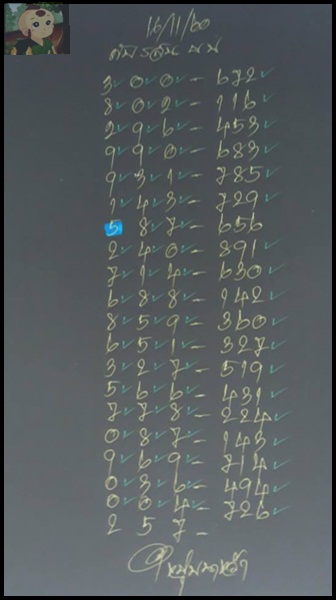 16/11/60
3 0 0 - 672
8 0 2 - 116
2 9 6 - 453
9 9 0 - 683
9 3 1 - 785
1 4 3 - 729
5 8 7 - 656
2 4 0 - 891
7 1 4 - 630
6 8 8 - 142
8 5 9 - 360
6 5 1 - 327
3 2 7 - 519
5 6 6 - 431
7 7 8 - 224
0 8 7 - 143
9 6 9 - 714
0 3 6 - 494
0 0 4 - 726
2 5 7 -